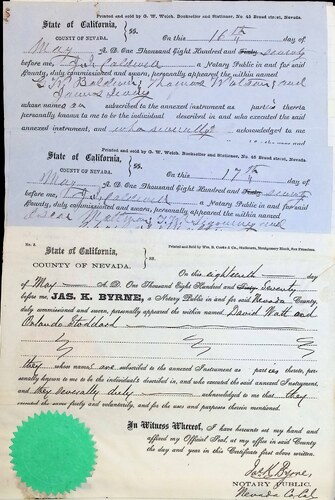 Printed and sold by G. W. Welch, Bookseller and Stationer, No. 43 Broad street, Nevada
State of California,
COUNTY OF NEVADA. } ss. On this 16th day of
May A. D. One Thousand Eight Hundred and Sixty seventy
before me, Caldwell a Notary Public in and for said
County, duly commissioned and sworn, personally appeared the within named
Thomas Watson and
whose names are subscribed to the annexed instrument as parties thereto
personally known to me to be the individual described in and who executed the said
annexed instrument, and who severally acknowledged to me
Printed and sold by G. W. Welch, Bookseller and Stationer, No. 43 Broad street, Nevada
State of California,
COUNTY OF NEVADA. } ss. On this 17th day of
May A. D. One Thousand Eight Hundred and Sixty seventy
before me, Caldwell a Notary Public in and for said
County, duly commissioned and sworn, personally appeared the within named
No. 8. Printed and Sold by Wm. B. Cooke & Co., Stationers, Montgomery Block, San Francisco.
State of California,
COUNTY OF NEVADA. } ss.
On this eighteenth day
of May A. D. One Thousand Eight Hundred and Sixty Seventy
before me, JAS. K. BYRNE, a Notary Public in and for said Nevada County,
duly commissioned and sworn, personally appeared the within named David Watt and
Orlando Stoddard
they whose names are subscribed to the annexed Instrument as parties thereto, per-
sonally known to me to be the individuals described in, and who executed the said annexed Instrument,
and they severally duly acknowledged to me that they
executed the same freely and voluntarily, and for the uses and purposes therein mentioned.
In Witness Whereof, I have hereunto set my hand and
affixed my Official Seal, at my office in said County
the day and year in this Certificate first above written.
Jas. K. Byrne
NOTARY PUBLIC.
Nevada Co. Cal